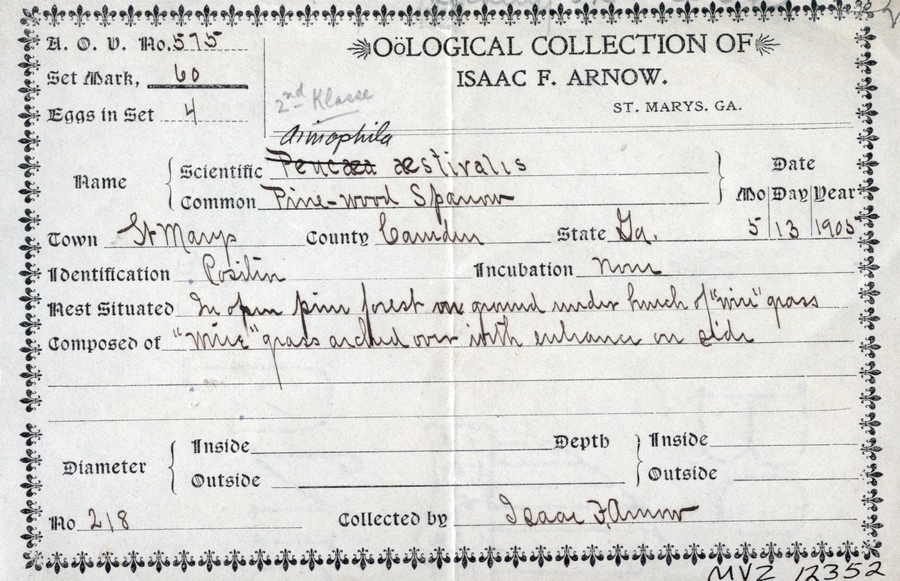 A. O. U. No. 575
OÖLOGICAL COLLECTION OF
Set Mark, 60
ISAAC F. ARNOW.
Eggs in Set 4
2nd Klasse
ST. MARYS. GA.
Aimophila
Name Scientific Peucæa æstivalis Date
Common Pine-wood Sparrow Mo Day Year
Town St Marys County Camden State Ga. 5 13 1905
Identification Positive Incubation None
Nest Situated In open pine forest on ground under bunch of "wire" grass
Composed of "Wire" grass arched over with entrance on side
Diameter Inside Depth Inside
Outside Outside
No 218 Collected by Isaac F. Arnow
MVZ 12352